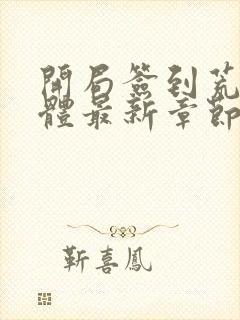 開局簽到荒
體最新章節
靳喜鳳